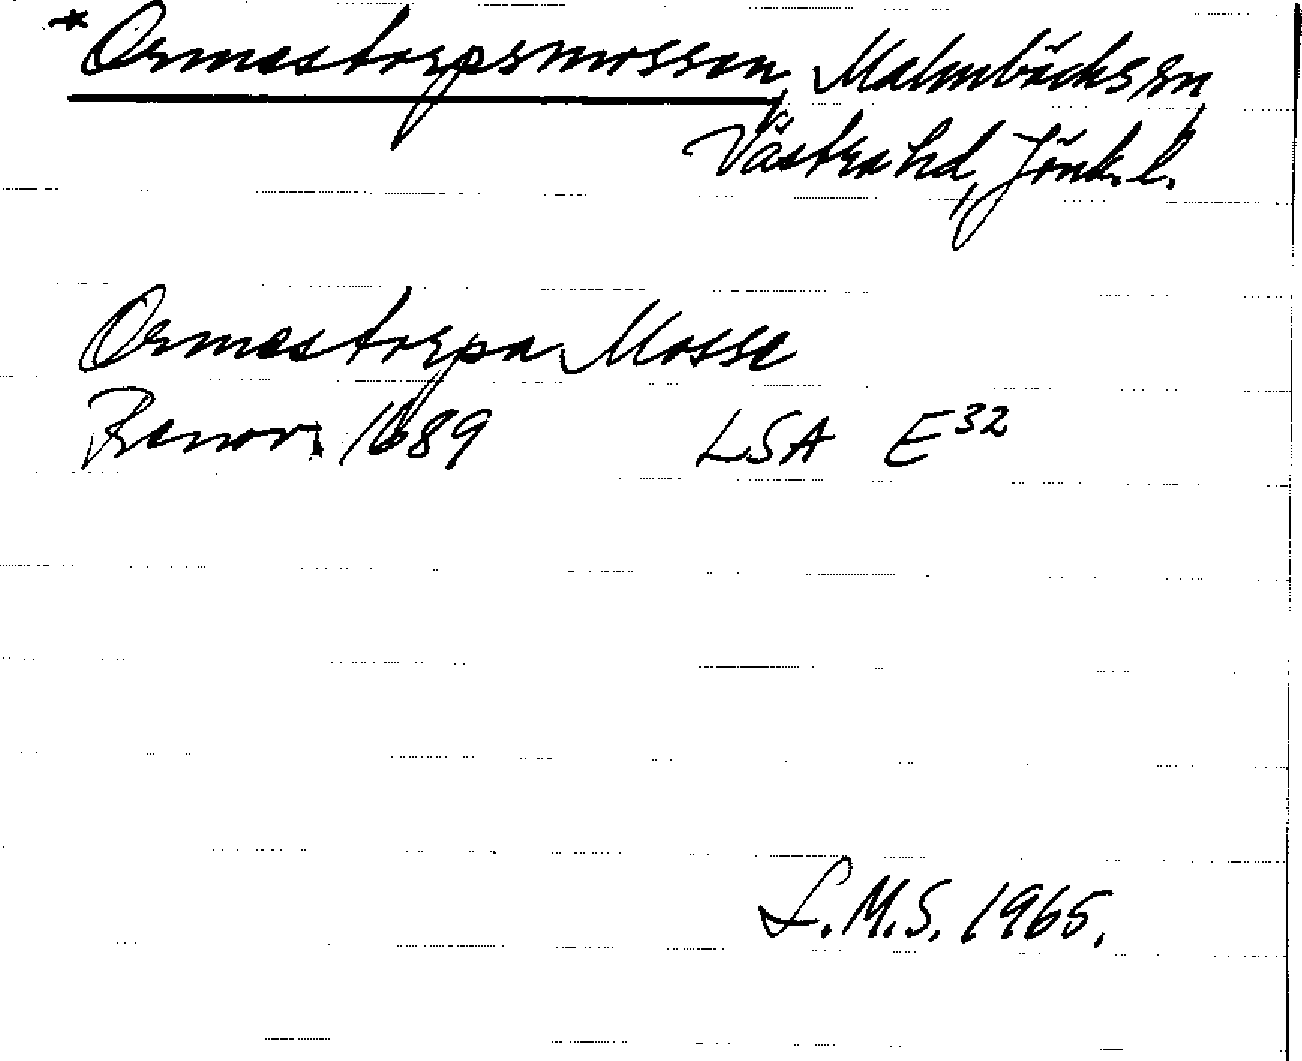 *Ormestorpsmossen, Malmbäcks sn,
Västra hd, Jönk. l.
Ormestorpa Mosse
Renov. 1689 LSA E32
L.M.S. 1965.